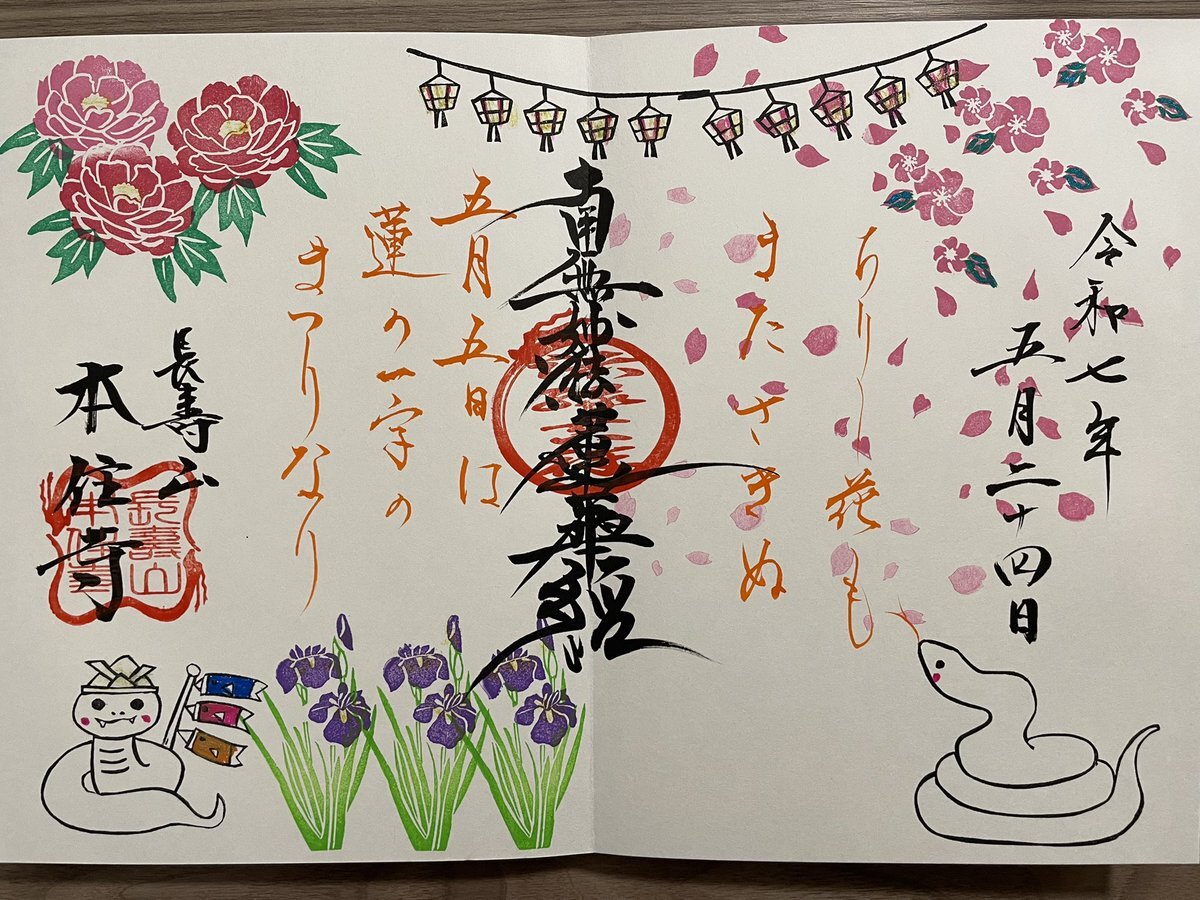 令和七年
五月二十四日
ちりし花も
またさきぬ
南無妙法蓮華経
五月五日は
蓮の一字の
まつりなり
長寿山
本住寺
長壽山
本住寺